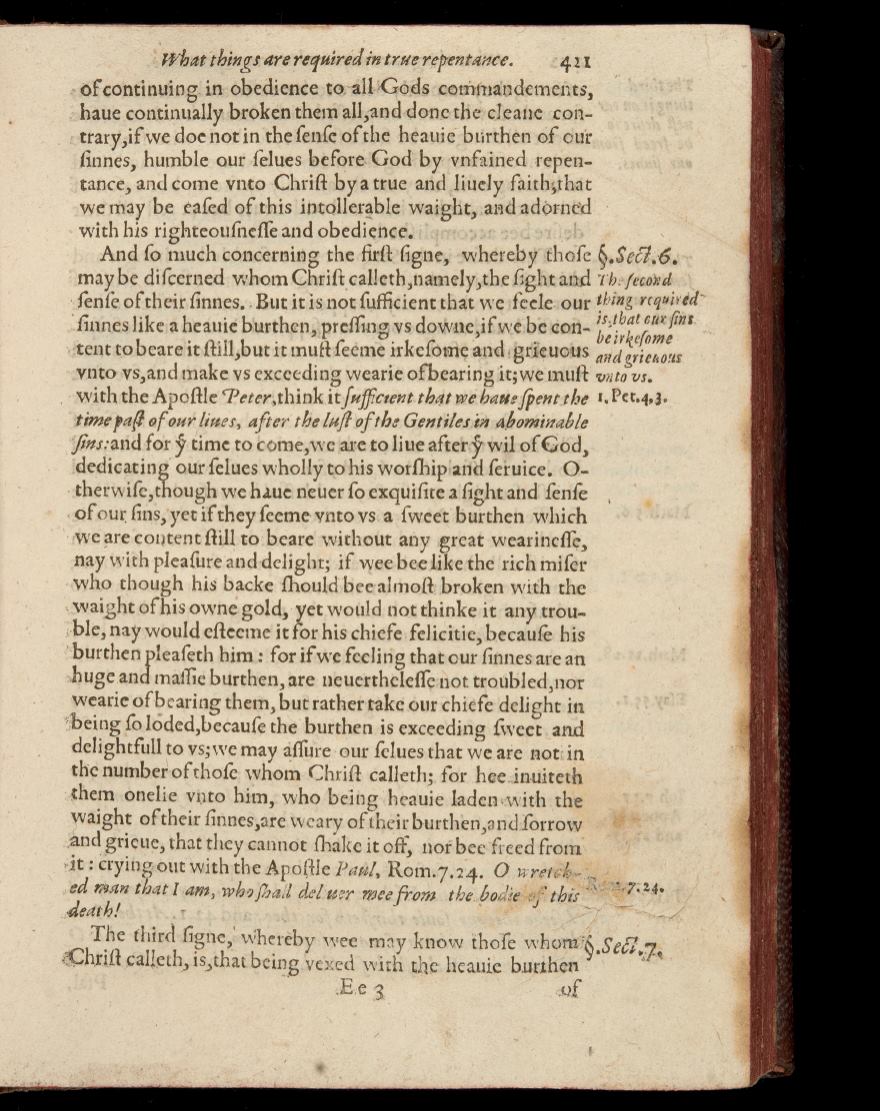 What things are required in true repentance. 421
of continuing in obedience to all Gods commandements,
haue continually broken them all, and done the cleane con-
trary, if we doe not in the ſenſe of the heauie burthen of our
ſinnes, humble our ſelues before God by vnfained repen-
tance, and come vnto Chriſt by a true and liuely faith, that
we may be eaſed of this intollerable waight, and adorned
with his righteouſneſſe and obedience.
And ſo much concerning the firſt ſigne, whereby thoſe
may be diſcerned whom Chriſt calleth, namely, the ſight and
ſenſe of their ſinnes. But it is not ſufficient that we feele our
ſinnes like a heauie burthen, preſſing vs downe, if we be con-
tent to beare it ſtill, but it muſt ſeeme irkeſome and grieuous
vnto vs, and make vs exceeding wearie of bearing it; we muſt
with the Apoſtle Peter, think it ſufficient that we haue ſpent the
time paſt of our liues, after the luſt of the Gentiles in abominable
ſins: and for ẙ time to come, we are to liue after ẙ wil of God,
dedicating our ſelues wholly to his worſhip and ſeruice. O-
therwiſe, though we haue neuer ſo exquiſite a ſight and ſenſe
of our ſins, yet if they ſeeme vnto vs a ſweet burthen which
we are content ſtill to beare without any great wearineſſe,
nay with pleaſure and delight; if wee bee like the rich miſer
who though his backe ſhould bee almoſt broken with the
waight of his owne gold, yet would not thinke it any trou-
ble, nay would eſteeme it for his chiefe felicitie, becauſe his
burthen pleaſeth him: for if we feeling that our ſinnes are an
huge and maſſie burthen, are neuertheleſſe not troubled, nor
wearie of bearing them, but rather take our chiefe delight in
being ſo loded, becauſe the burthen is exceeding ſweet and
delightfull to vs; we may aſſure our ſelues that we are not in
the number of thoſe whom Chriſt calleth; for hee inuiteth
them onelie vnto him, who being heauie laden with the
waight of their ſinnes, are weary of their burthen, and ſorrow
and grieue, that they cannot ſhake it off, nor bee freed from
it: crying out with the Apoſtle Paul, Rom.7.24. O wretch-
ed man that I am, who ſhall deliuer mee from the bodie of this
death!
The third ſigne, whereby wee may know thoſe whom
Chriſt calleth, is, that being vexed with the heauie burthen
Ee 3 of
§.Sect.6.
Th. ſecond
thing required
is, that our ſins
be irkeſome
and grieuous
vnto vs.
1.Pet.4,3.
7.24.
§.Sect.7.